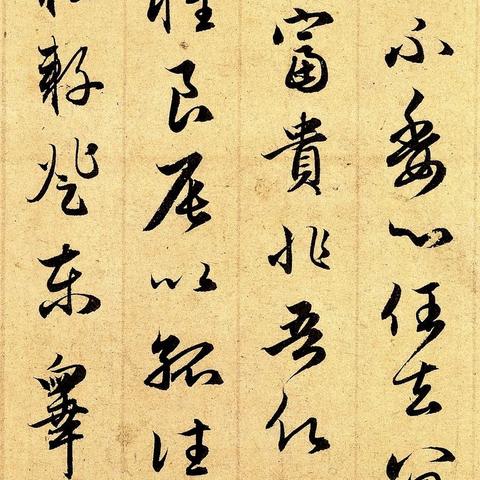 不委心任去
富貴非吾願
良辰以孤往
耔登東皋